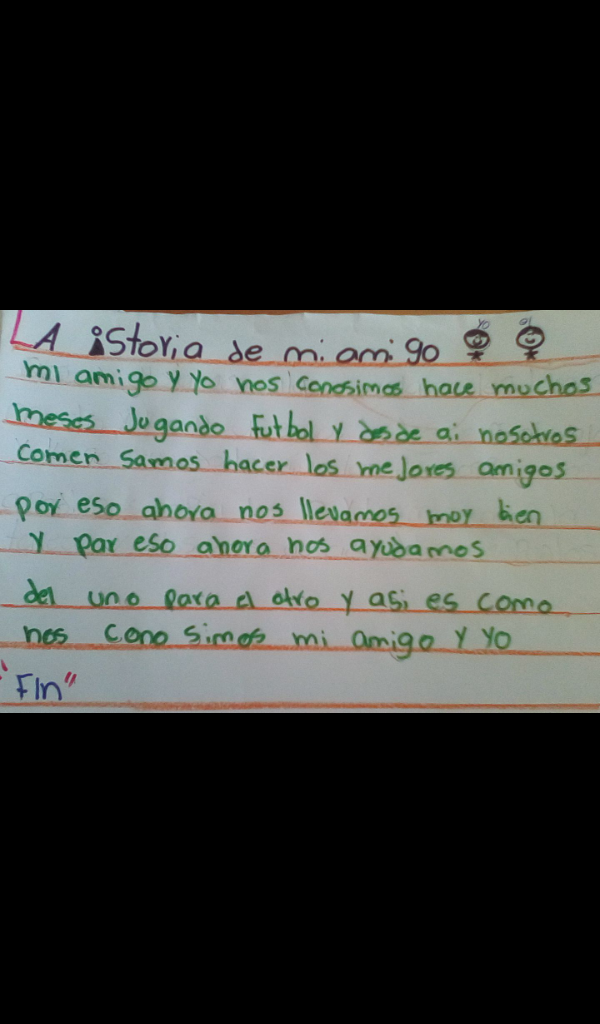 LA iStoria de mi amigo yo el
mi amigo y yo nos conosimos hace muchos
meses Jugando Futbol y desde ai nosotros
comen samos hacer los mejores amigos
por eso ahora nos llevamos moy bien
y par eso ahora nos ayudamos
del uno para el otro y asi es como
nos cono simos mi amigo y yo
"Fin"